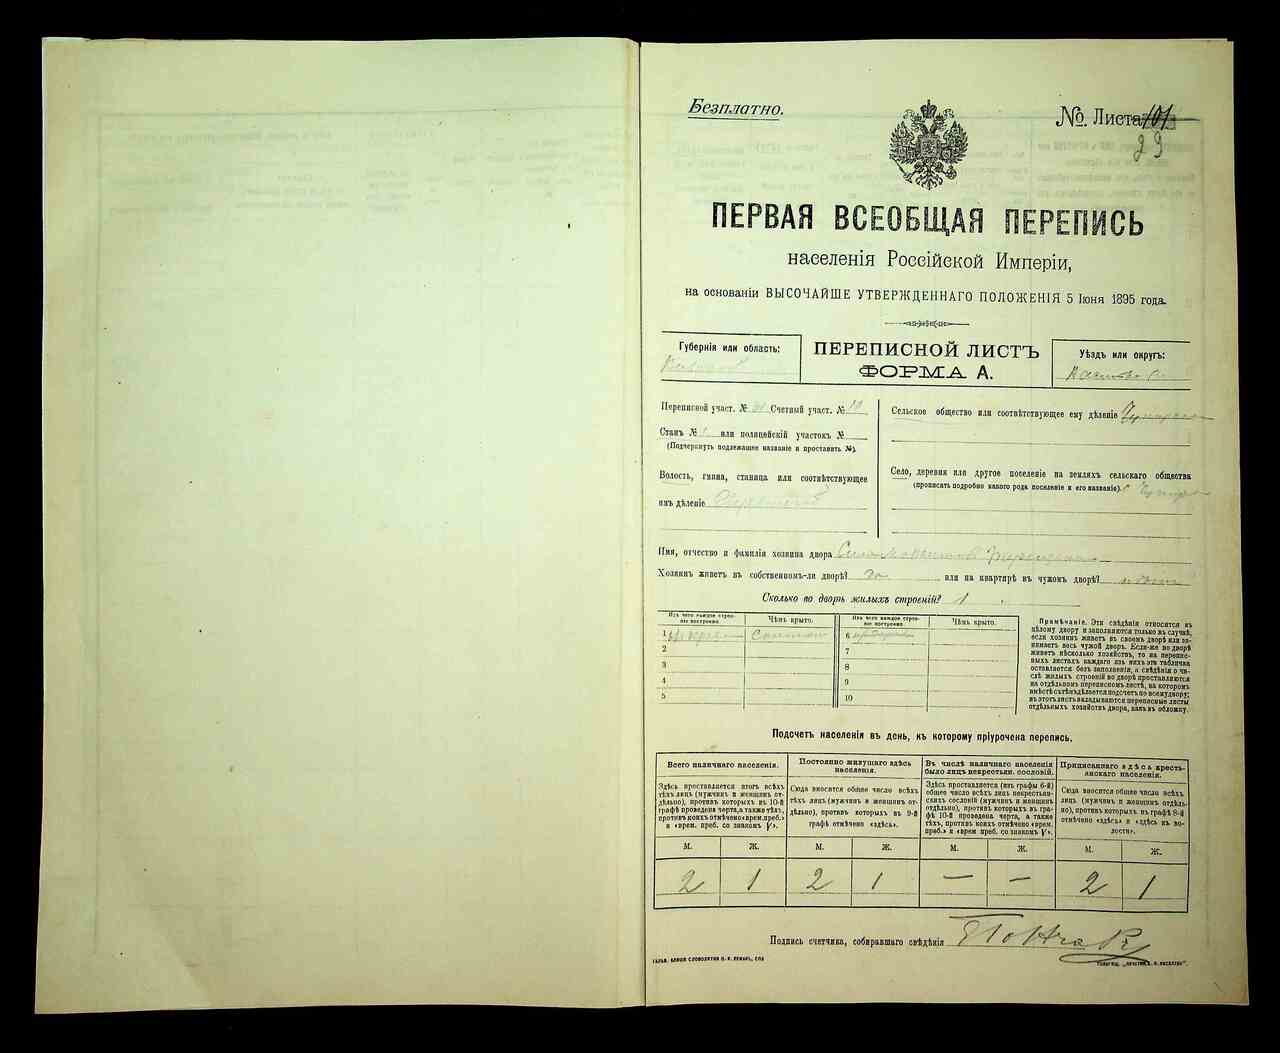 Безплатно.
№ Листа 101
29
ПЕРВАЯ ВСЕОБЩАЯ ПЕРЕПИСЬ
населенія Россійской Имперіи,
на основаніи ВЫСОЧАЙШЕ УТВЕРЖДЕННАГО ПОЛОЖЕНІЯ 5 Іюня 1895 года.
Губернія или область:
ПЕРЕПИСНОЙ ЛИСТЪ
ФОРМА А.
Уѣздъ или округъ:
Переписной участ. № Счетный участ. № 10
Станъ № 1 или полицейскій участокъ №
(Подчеркнуть подлежащее названіе и проставить №).
Волость, гмина, станица или соотвѣтствующее
имъ дѣленіе
Сельское общество или соотвѣтствующее ему дѣленіе
Село, деревня или другое поселеніе на земляхъ сельскаго общества
(прописать подробно какого рода поселеніе и его названіе).
Имя, отчество и фамилія хозяина двора
Хозяинъ живетъ въ собственномъ-ли дворѣ? да или на квартирѣ въ чужомъ дворѣ?
Сколько во дворѣ жилыхъ строеній? 1
Изъ чего каждое строеніе построено.
Чѣмъ крыто.
Изъ чего каждое строеніе построено.
Чѣмъ крыто.
1
2
3
4
5
6
7
8
9
10
Примѣчаніе. Эти свѣдѣнія относятся къ
цѣлому двору и заполняются только въ случаѣ,
если хозяинъ живетъ въ своемъ дворѣ или за-
нимаетъ весь чужой дворъ. Если-же во дворѣ
живетъ нѣсколько хозяйствъ, то на перепис-
ныхъ листахъ каждаго изъ нихъ эта табличка
оставляется безъ заполненія, а свѣдѣнія о чи-
слѣ жилыхъ строеній во дворѣ проставляются
на отдѣльномъ переписномъ листѣ, на которомъ
вмѣстѣ съ тѣмъ дѣлается подсчетъ по всему двору;
въ этотъ листъ вкладываются переписные листы
отдѣльныхъ хозяйствъ двора, какъ въ обложку.
Подсчетъ населенія въ день, къ которому пріурочена перепись.
Всего наличнаго населенія.
Здѣсь проставляется итогъ всѣхъ
тѣхъ лицъ (мужчинъ и женщинъ от-
дѣльно), противъ которыхъ въ 10-й
графѣ проведена черта, а также тѣхъ,
противъ коихъ отмѣчено «врем. преб.»
и «врем. преб. со знакомъ V».
Постоянно живущаго здѣсь
населенія.
Сюда вносится общее число всѣхъ
тѣхъ лицъ (мужчинъ и женщинъ от-
дѣльно), противъ которыхъ въ 9-й
графѣ отмѣчено «здѣсь».
Въ числѣ наличнаго населенія
было лицъ некрестьян. сословій.
Здѣсь проставляется (изъ графы 6-й)
общее число всѣхъ лицъ некрестьян-
скихъ сословій (мужчинъ и женщинъ
отдѣльно), противъ которыхъ въ гра-
фѣ 10-й проведена черта, а также
тѣхъ, противъ коихъ отмѣчено «врем.
преб.» и «врем преб. со знакомъ V».
Приписаннаго здѣсь кресть-
янскаго населенія.
Сюда вносится общее число всѣхъ
лицъ (мужчинъ и женщинъ отдѣль-
но), противъ которыхъ въ графѣ 8-й
отмѣчено «здѣсь» и «здѣсь въ во-
лости».
М. Ж. М. Ж. М. Ж. М. Ж.
2 1 2 1 — — 2 1
Подпись счетчика, собиравшаго свѣдѣнія